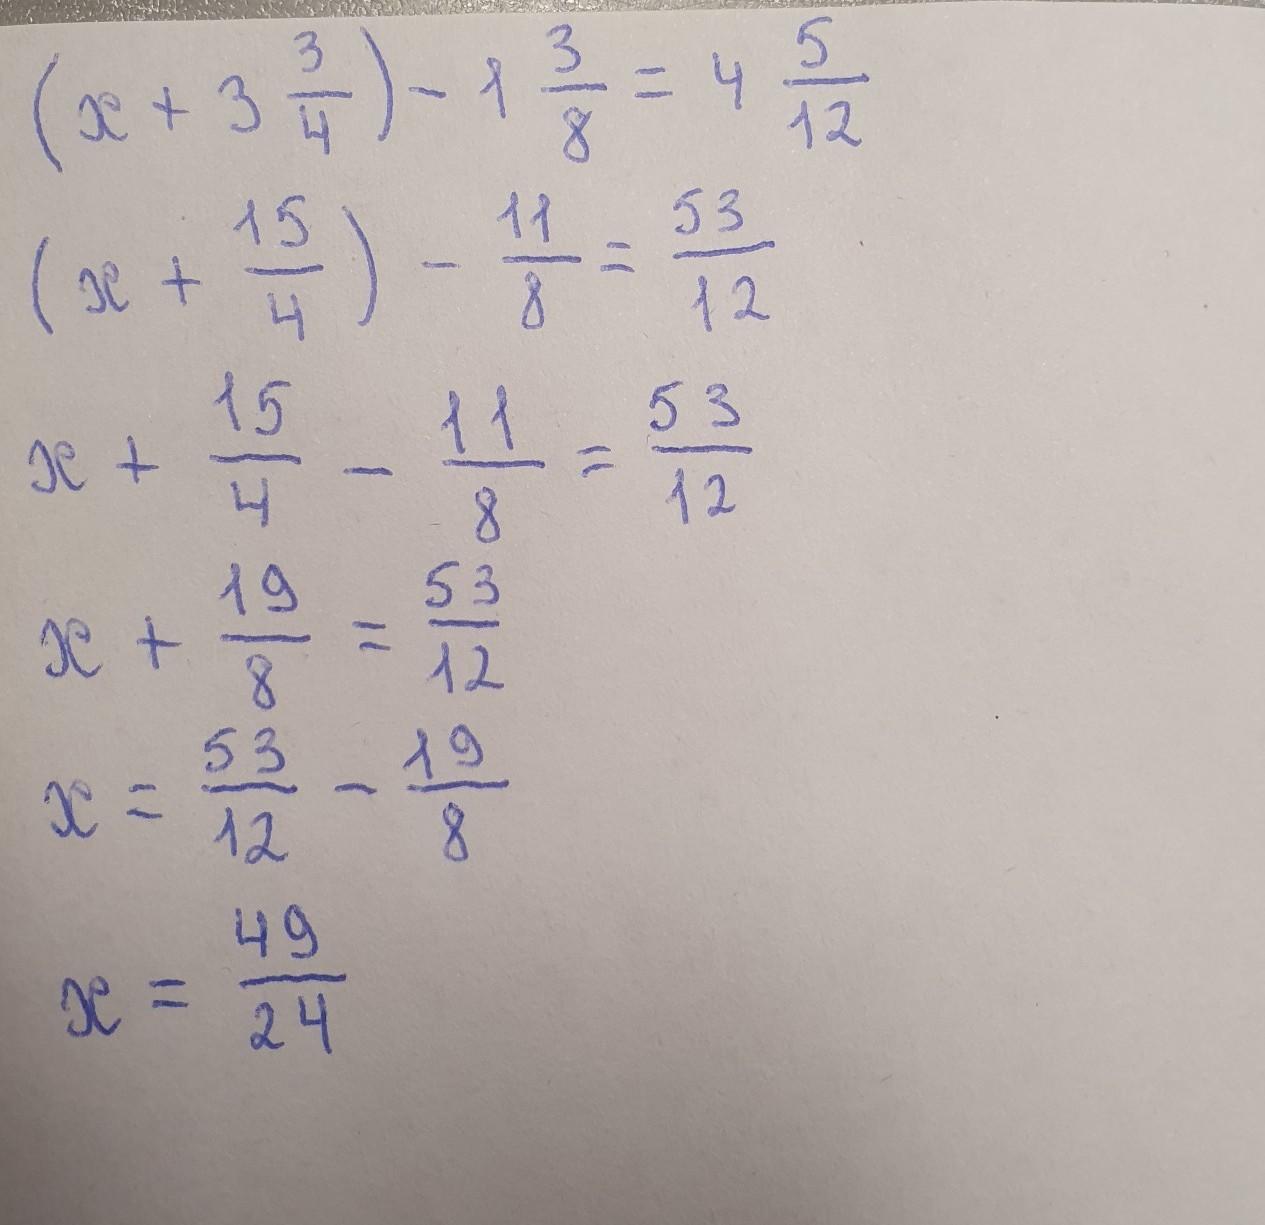 (x + 3 3/4) - 1 3/8 = 4 5/12
(x + 15/4) - 11/8 = 53/12
x + 15/4 - 11/8 = 53/12
x + 19/8 = 53/12
x = 53/12 - 19/8
x = 49/24